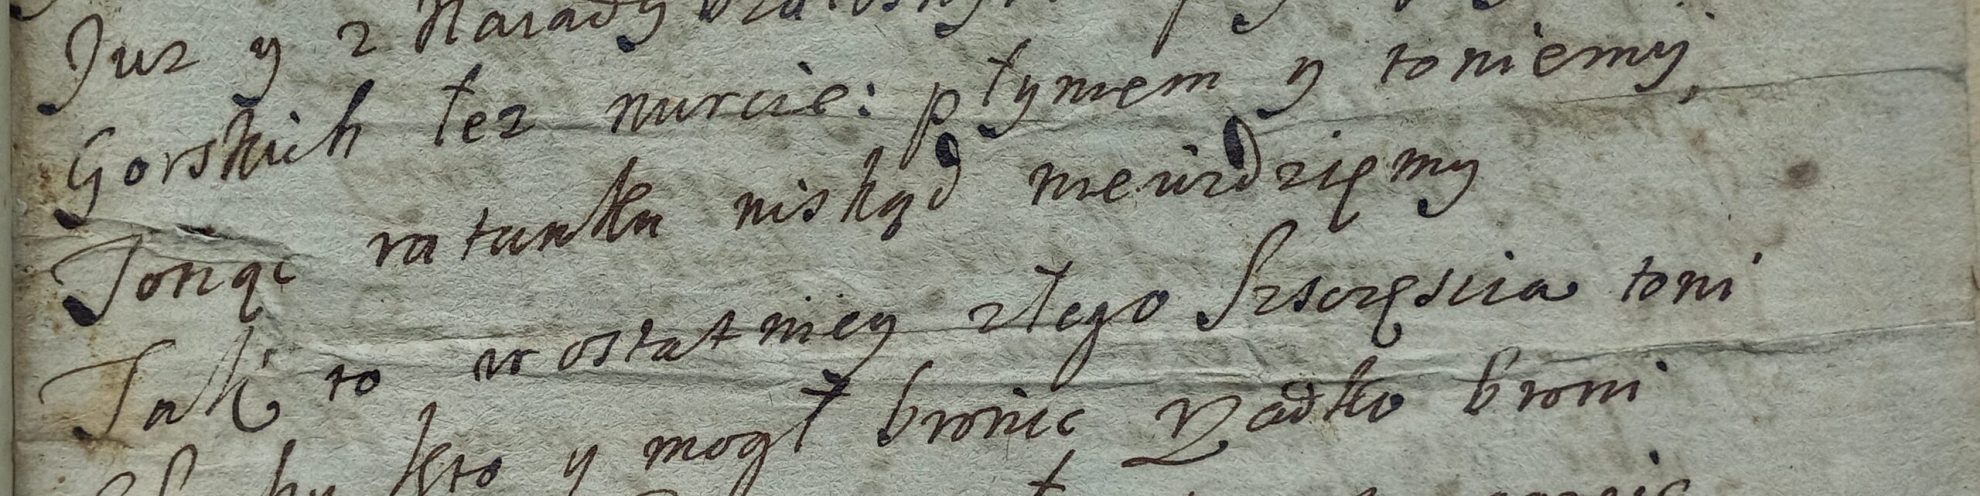 Juz y z
Gorskich łez nurcie: płyniem y toniemy,
Tonąc ratunku niskąd niewidzięmy
Tak to w ostatniey złego Szczęscia toni
kto y mogł bronic Rzadko broni